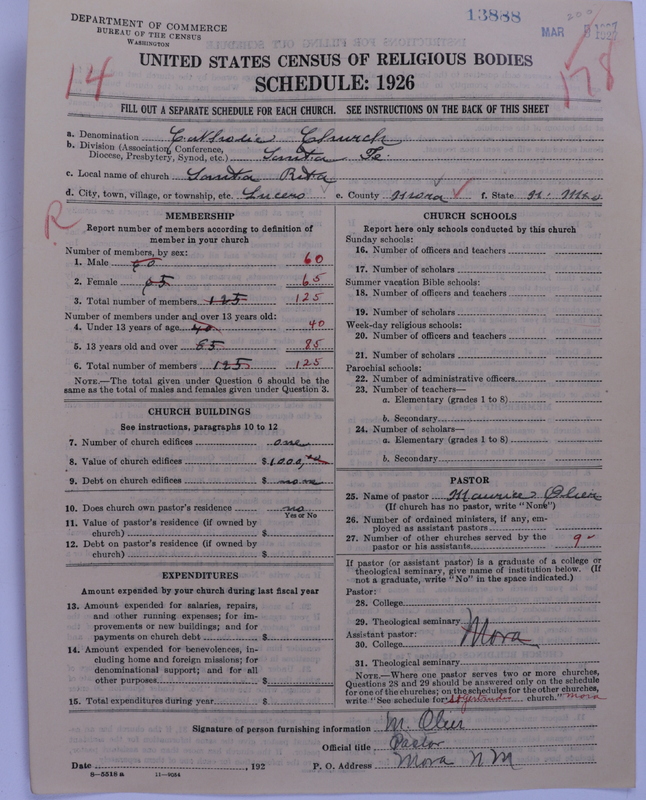 DEPARTMENT OF COMMERCE
BUREAU OF THE CENSUS
WASHINGTON
13888
MAR
14
178
UNITED STATES CENSUS OF RELIGIOUS BODIES
SCHEDULE: 1926
FILL OUT A SEPARATE SCHEDULE FOR EACH CHURCH. SEE INSTRUCTIONS ON THE BACK OF THIS SHEET
a. Denomination Catholic Church
b. Division (Association, Conference, Diocese, Presbytery, Synod, etc.) Santa Fe
c. Local name of church Santa Rita
d. City, town, village, or township, etc. Lucero e. County Mora f. State N. Mex.
R
MEMBERSHIP
Report number of members according to definition of
member in your church
Number of members, by sex:
1. Male 60 60
2. Female 65 65
3. Total number of members 125 125
Number of members under and over 13 years old:
4. Under 13 years of age 40 40
5. 13 years old and over 85 85
6. Total number of members 125 125
NOTE.—The total given under Question 6 should be
same as the total of males and females given under Question 3.
CHURCH BUILDINGS
See instructions, paragraphs 10 to 12
7. Number of church edifices one
8. Value of church edifices $1000,00
9. Debt on church edifices $ none
10. Does church own pastor's residence no
Yes or No
11. Value of pastor's residence (if owned by
church) $
12. Debt on pastor's residence (if owned by
church) $
EXPENDITURES
Amount expended by your church during last fiscal year
13. Amount expended for salaries, repairs,
and other running expenses; for im-
provements or new buildings; and for
payments on church debt $
14. Amount expended for benevolences, in-
cluding home and foreign missions; for
denominational support; and for all
other purposes $
15. Total expenditures during year $
CHURCH SCHOOLS
Report here only schools conducted by this church
Sunday schools:
16. Number of officers and teachers
17. Number of scholars
Summer vacation Bible schools:
18. Number of officers and teachers
19. Number of scholars
Week-day religious schools:
20. Number of officers and teachers
21. Number of scholars
Parochial schools:
22. Number of administrative officers
23. Number of teachers—
a. Elementary (grades 1 to 8)
b. Secondary
24. Number of scholars—
a. Elementary (grades 1 to 8)
b. Secondary
PASTOR
25. Name of pastor Maurice Olier
(If church has no pastor, write "None")
26. Number of ordained ministers, if any, em-
ployed as assistant pastors
27. Number of other churches served by the
pastor or his assistants 9
If pastor (or assistant pastor) is a graduate of a college or
theological seminary, give name of institution below. (If
not a graduate, write "No" in the space indicated.)
Pastor:
28. College
29. Theological seminary
Assistant pastor: Mora
30. College
31. Theological seminary
NOTE.—Where one pastor serves two or more churches,
Questions 28 and 29 should be answered only on the schedule
for one of the churches; on the schedules for the other churches,
write "See schedule for St Gertrudes church." Mora
Signature of person furnishing information M. Olier
Official title Pastor
Date , 192 P. O. Address Mora N M
8—5518 a 11—9054